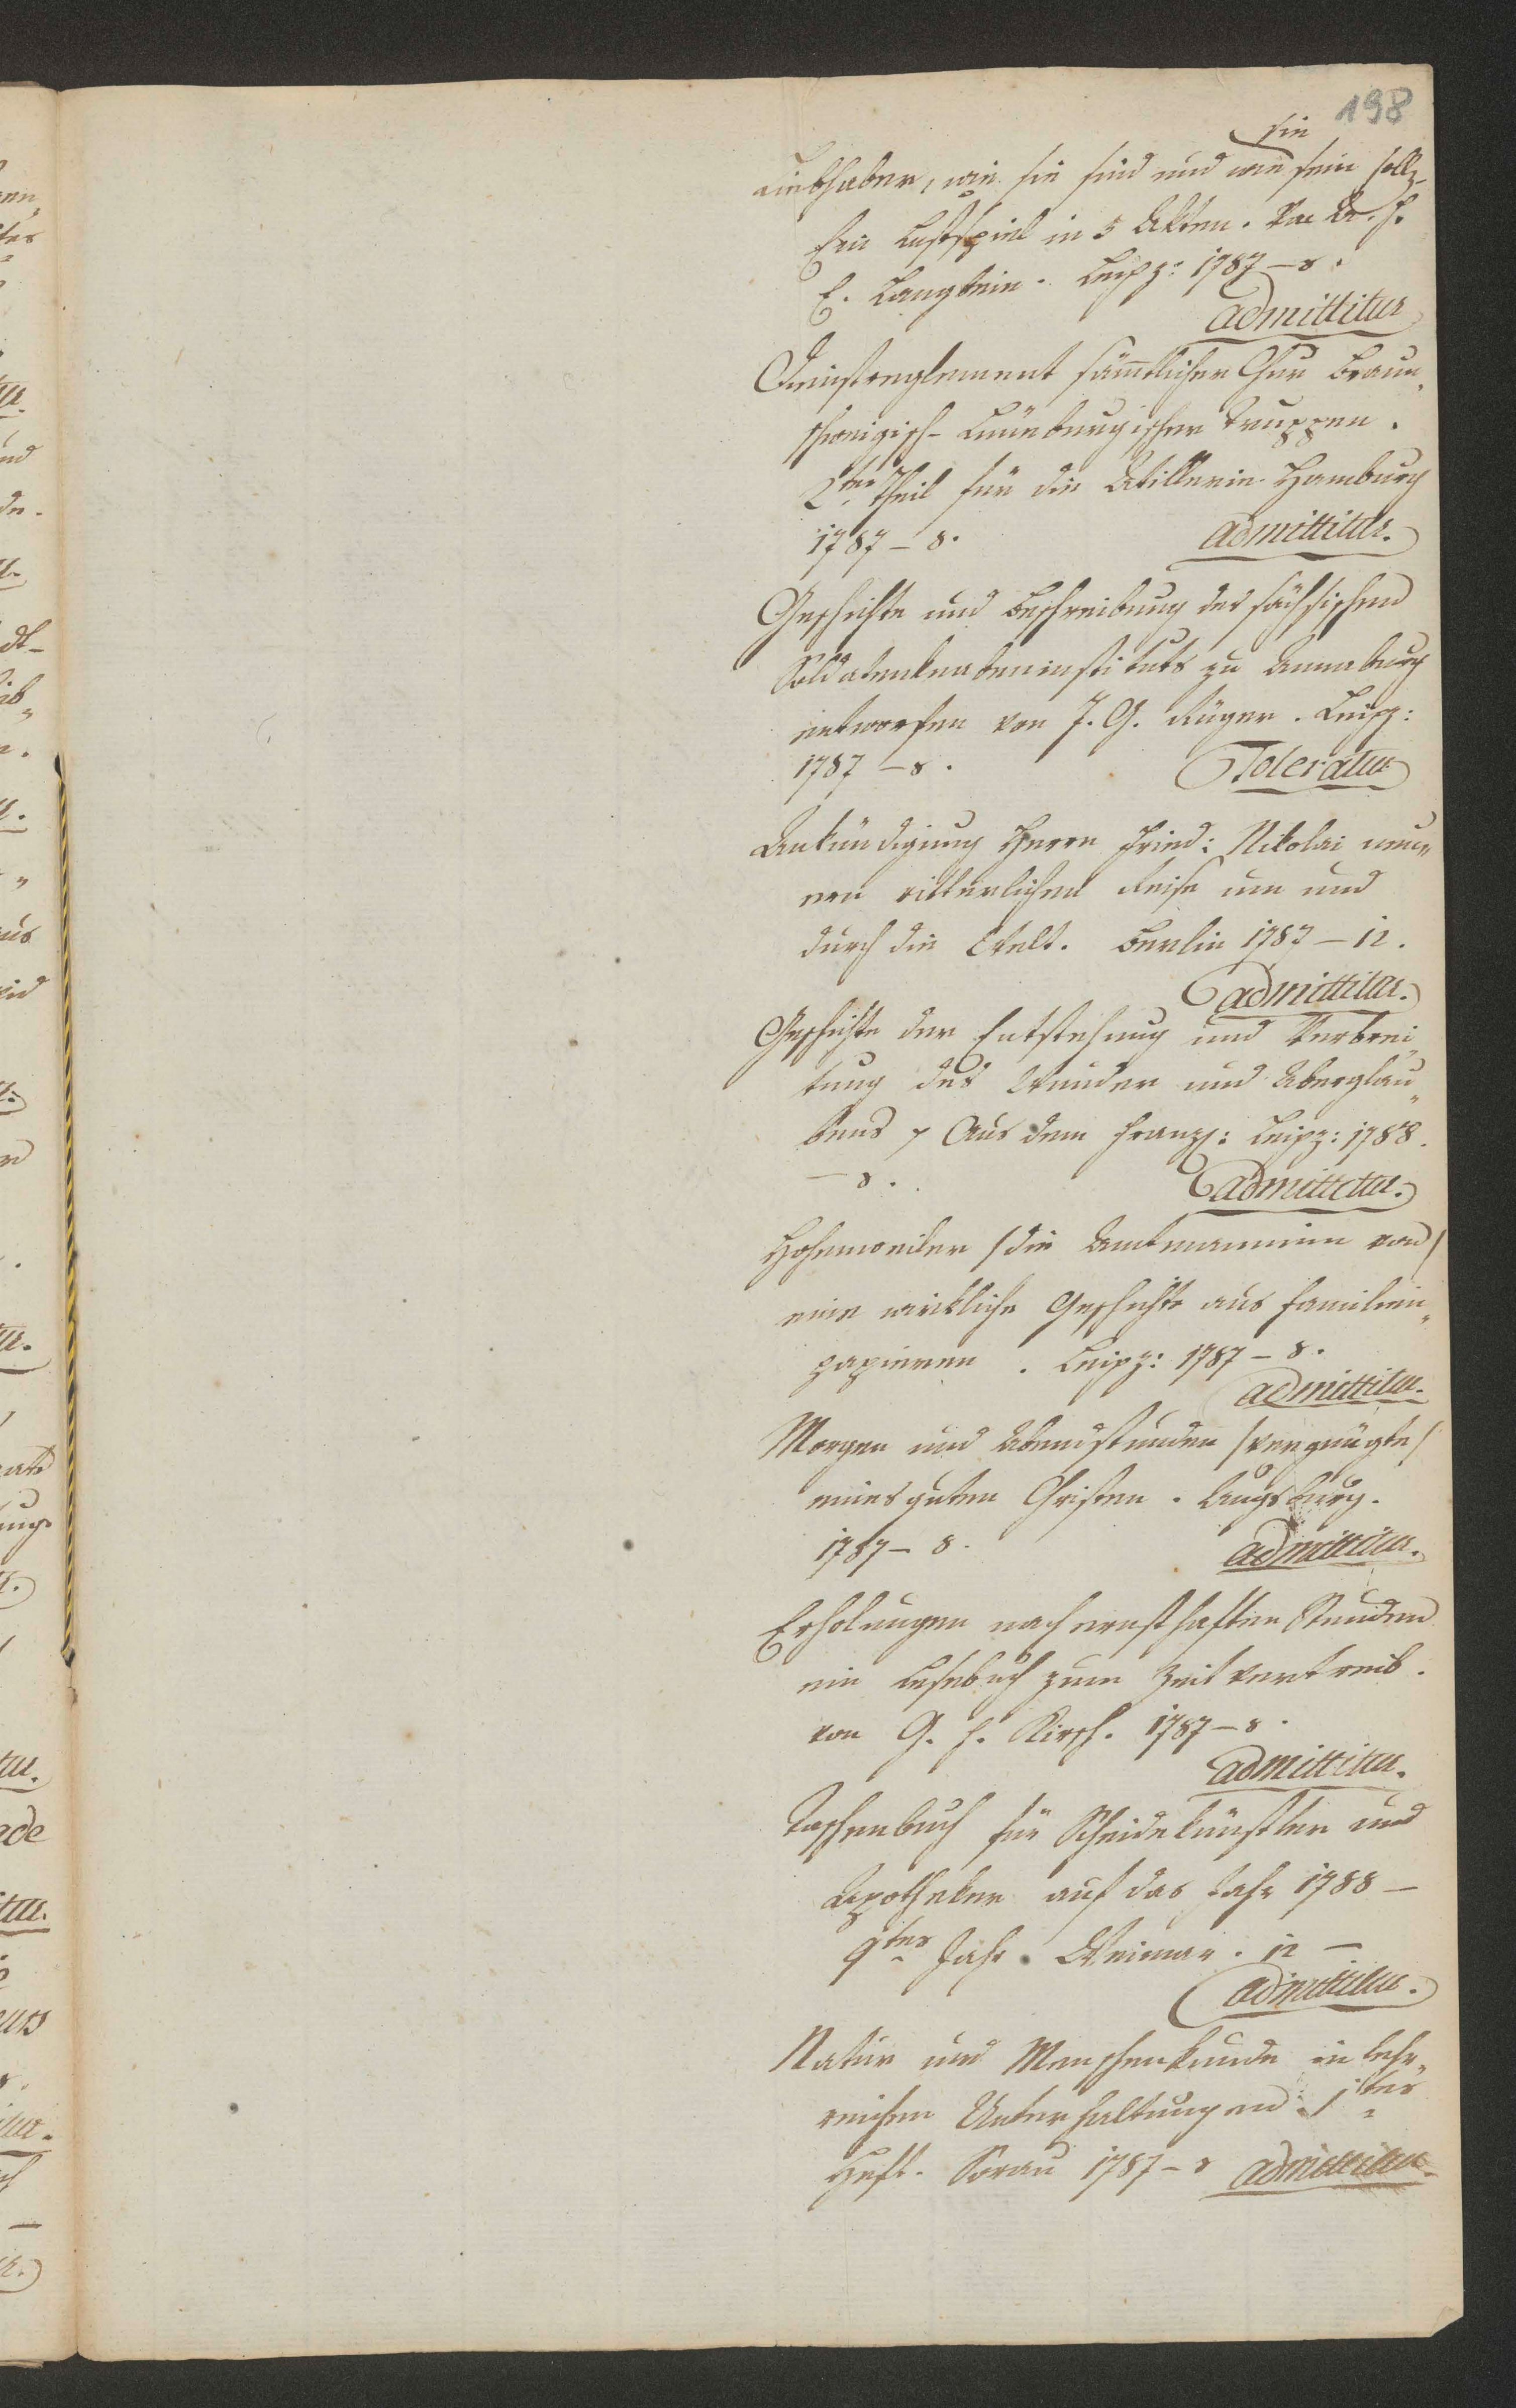 198
sie
Liebhaber, wie sie sind und wie sein soll.
Ein Lustspiel in 5 Akten. Von A. F.
E. Langbein. Leipz: 1787 – 8.
admittitur
Dienstreglement sämtlicher Chur Braun„
schweigisch-Lüneburgischer Truppen.
2ter Theil für die Artillerie Hamburg
1787 – 8. admittitur.
Geschichte und Beschreibung des sächsischen
Soldatenknabeninstituts zu Annaburg
entworfen von J. G. Rüger. Leipz:
1787 – 8. Toleratur
Ankündigung Herrn Fried: Nikolai neu„
en ritterlichen Reise um und
durch die Welt. Berlin 1787 – 12.
admittitur.
Geschichte der Entstehung und Verbrei„
tung des Wunder und Aberglau„
bens Aus dem Franz: Leipz: 1788.
– 8. admittitur.
Hohenweiler /die Amtmanninn von/
eine wirkliche Geschichte aus Familien„
papieren. Leipz: 1787 – 8.
admittitur.
Morgen und Abendstunden /vergnügte/
eines guten Christen. Augsburg.
1787 – 8. admittitur.
Erholungen nach ernsthaften Stunden
ein Lesebuch zum Zeitvertreib.
von G. F. Kirsch. 1787 – 8.
admittitur.
Taschenbuch für Scheidekünstler und
Apotheker auf das Jahr 1788 –
9tes Jahr. Weimar. 12 –
admittitur.
Natur und Menschenkunde in lehr„
reichen Unterhaltungen 1tes
Heft. Sorau 1787 – 8 admittitur.